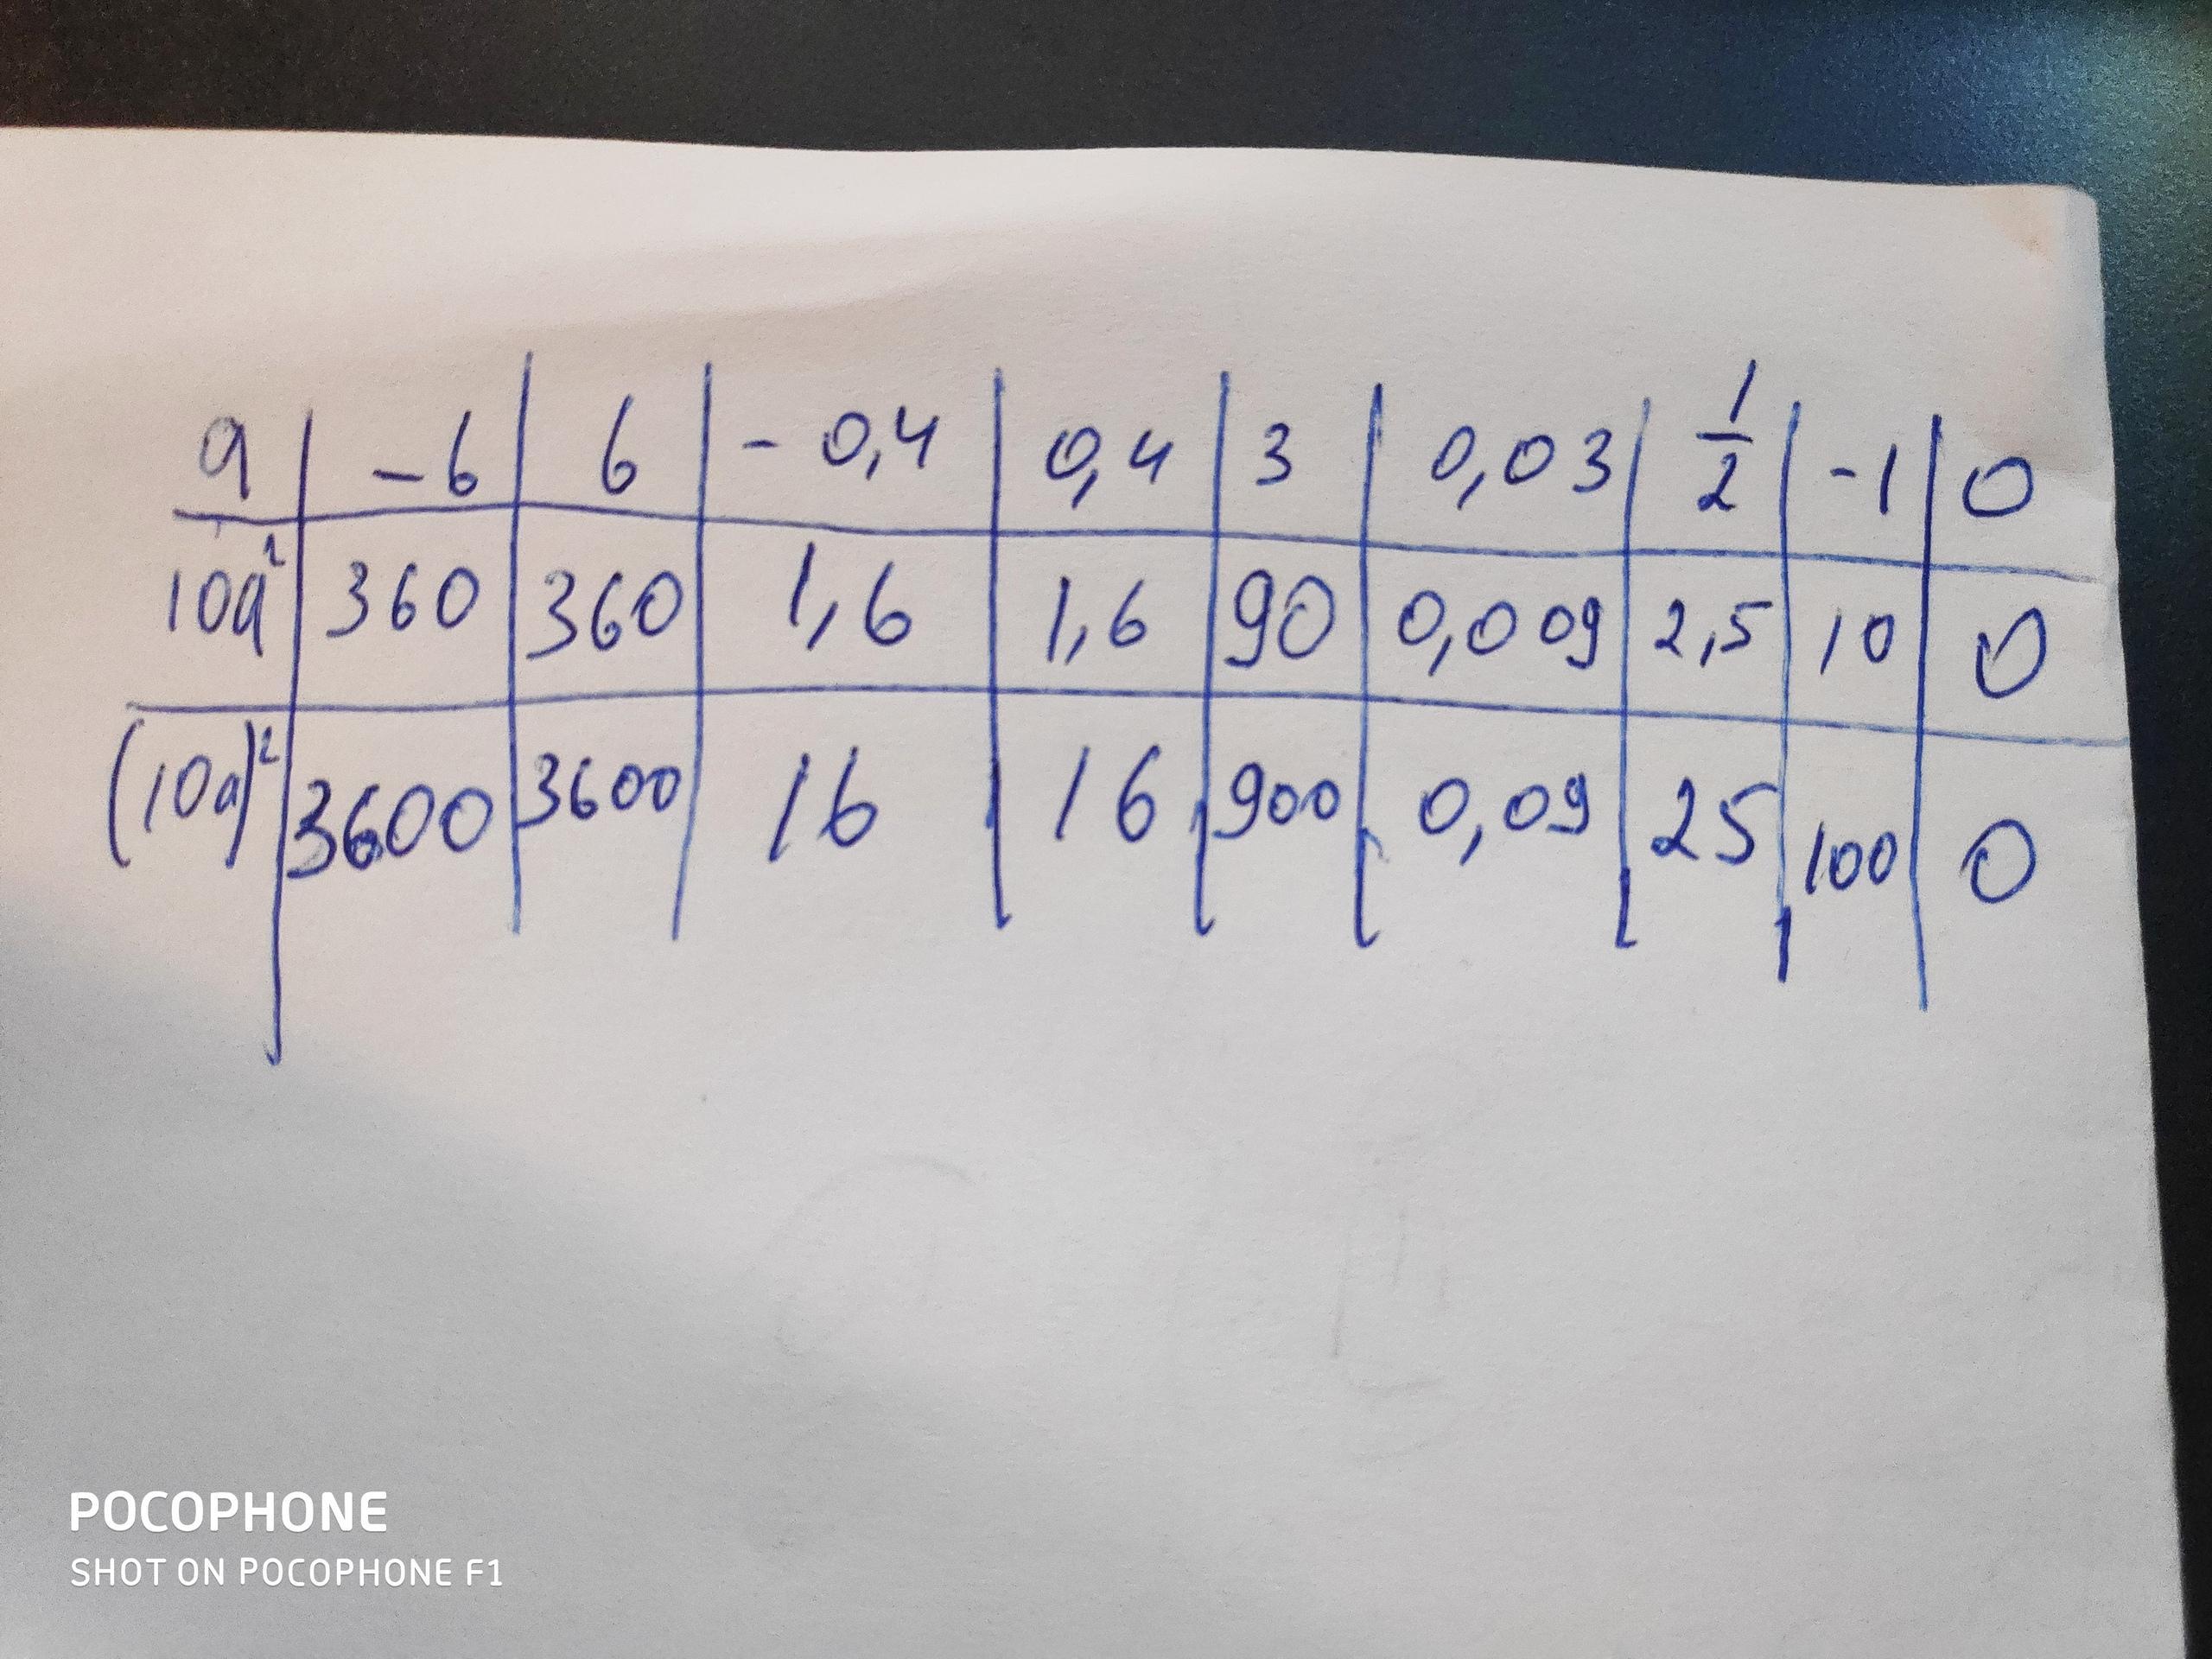 a -6 6 -0,4 0,4 3 0,03 1/2 -1 0
10a² 360 360 1,6 1,6 90 0,009 2,5 10 0
(10a)² 3600 3600 16 16 900 0,09 25 100 0
POCOPHONE
SHOT ON POCOPHONE F1